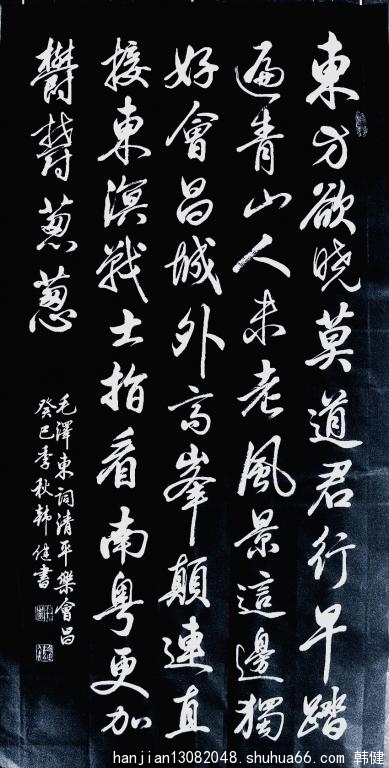 東方欲晓莫道君行早踏
遍青山人未老風景這邊獨
好會昌城外高峯顛連直
接東溟戰士指看南粤更加
欝欝葱葱
毛澤東詞清平樂會昌
癸巳季秋韩健書
hanjian13082048.shuhua66.com 韩健